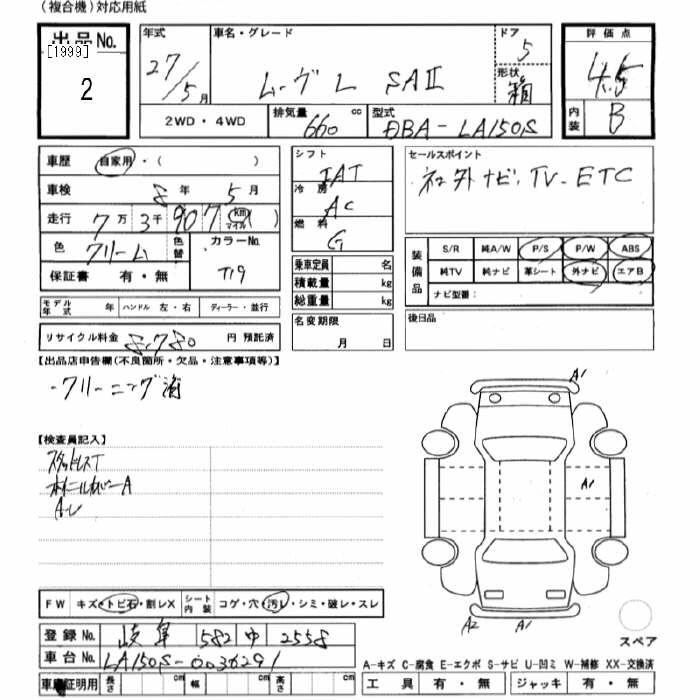 (複合機)対応用紙
出品No. [1999] 2
年式 27/5月
車名・グレード ムーヴ L SAⅡ
ドア 5
形状 箱
評価点 4.5
内装 B
2WD・4WD
排気量 660 cc
型式 DBA-LA150S
車歴 自家用・( )
車検 8年 5月
走行 7万3千907 km マイル
色 クリーム 色替
カラーNo. T19
保証書 有・無
シフト IAT
冷房 AC
燃料 G
乗車定員 名
積載量 kg
総重量 kg
名変期限 月 日
セールスポイント
社外ナビ、TV、ETC
装備品 S/R 純A/W P/S P/W ABS
純TV 純ナビ 革シート 外ナビ エアB
ナビ型番:
後日品
モデル年式 年 ハンドル 左・右 ディーラー・並行
リサイクル料金 8,780 円 預託済
【出品店申告欄(不良箇所・欠品・注意事項等)】
・クリーニング済
【検査員記入】
スタッドレスT
ホイールカバーA
A-レ
A1
A1
A2 A1
スペア
FW キズ・トビ石・割レX シート内装 コゲ・穴・汚レ・シミ・破レ・スレ
登録No. 岐阜 582 ゆ 2558
車台No. LA150S-0036291
車庫証明用 長さ cm 幅 cm 高さ cm
A-キズ C-腐食 E-エクボ S-サビ U-凹ミ W-補修 XX-交換済
工具 有・無 ジャッキ 有・無